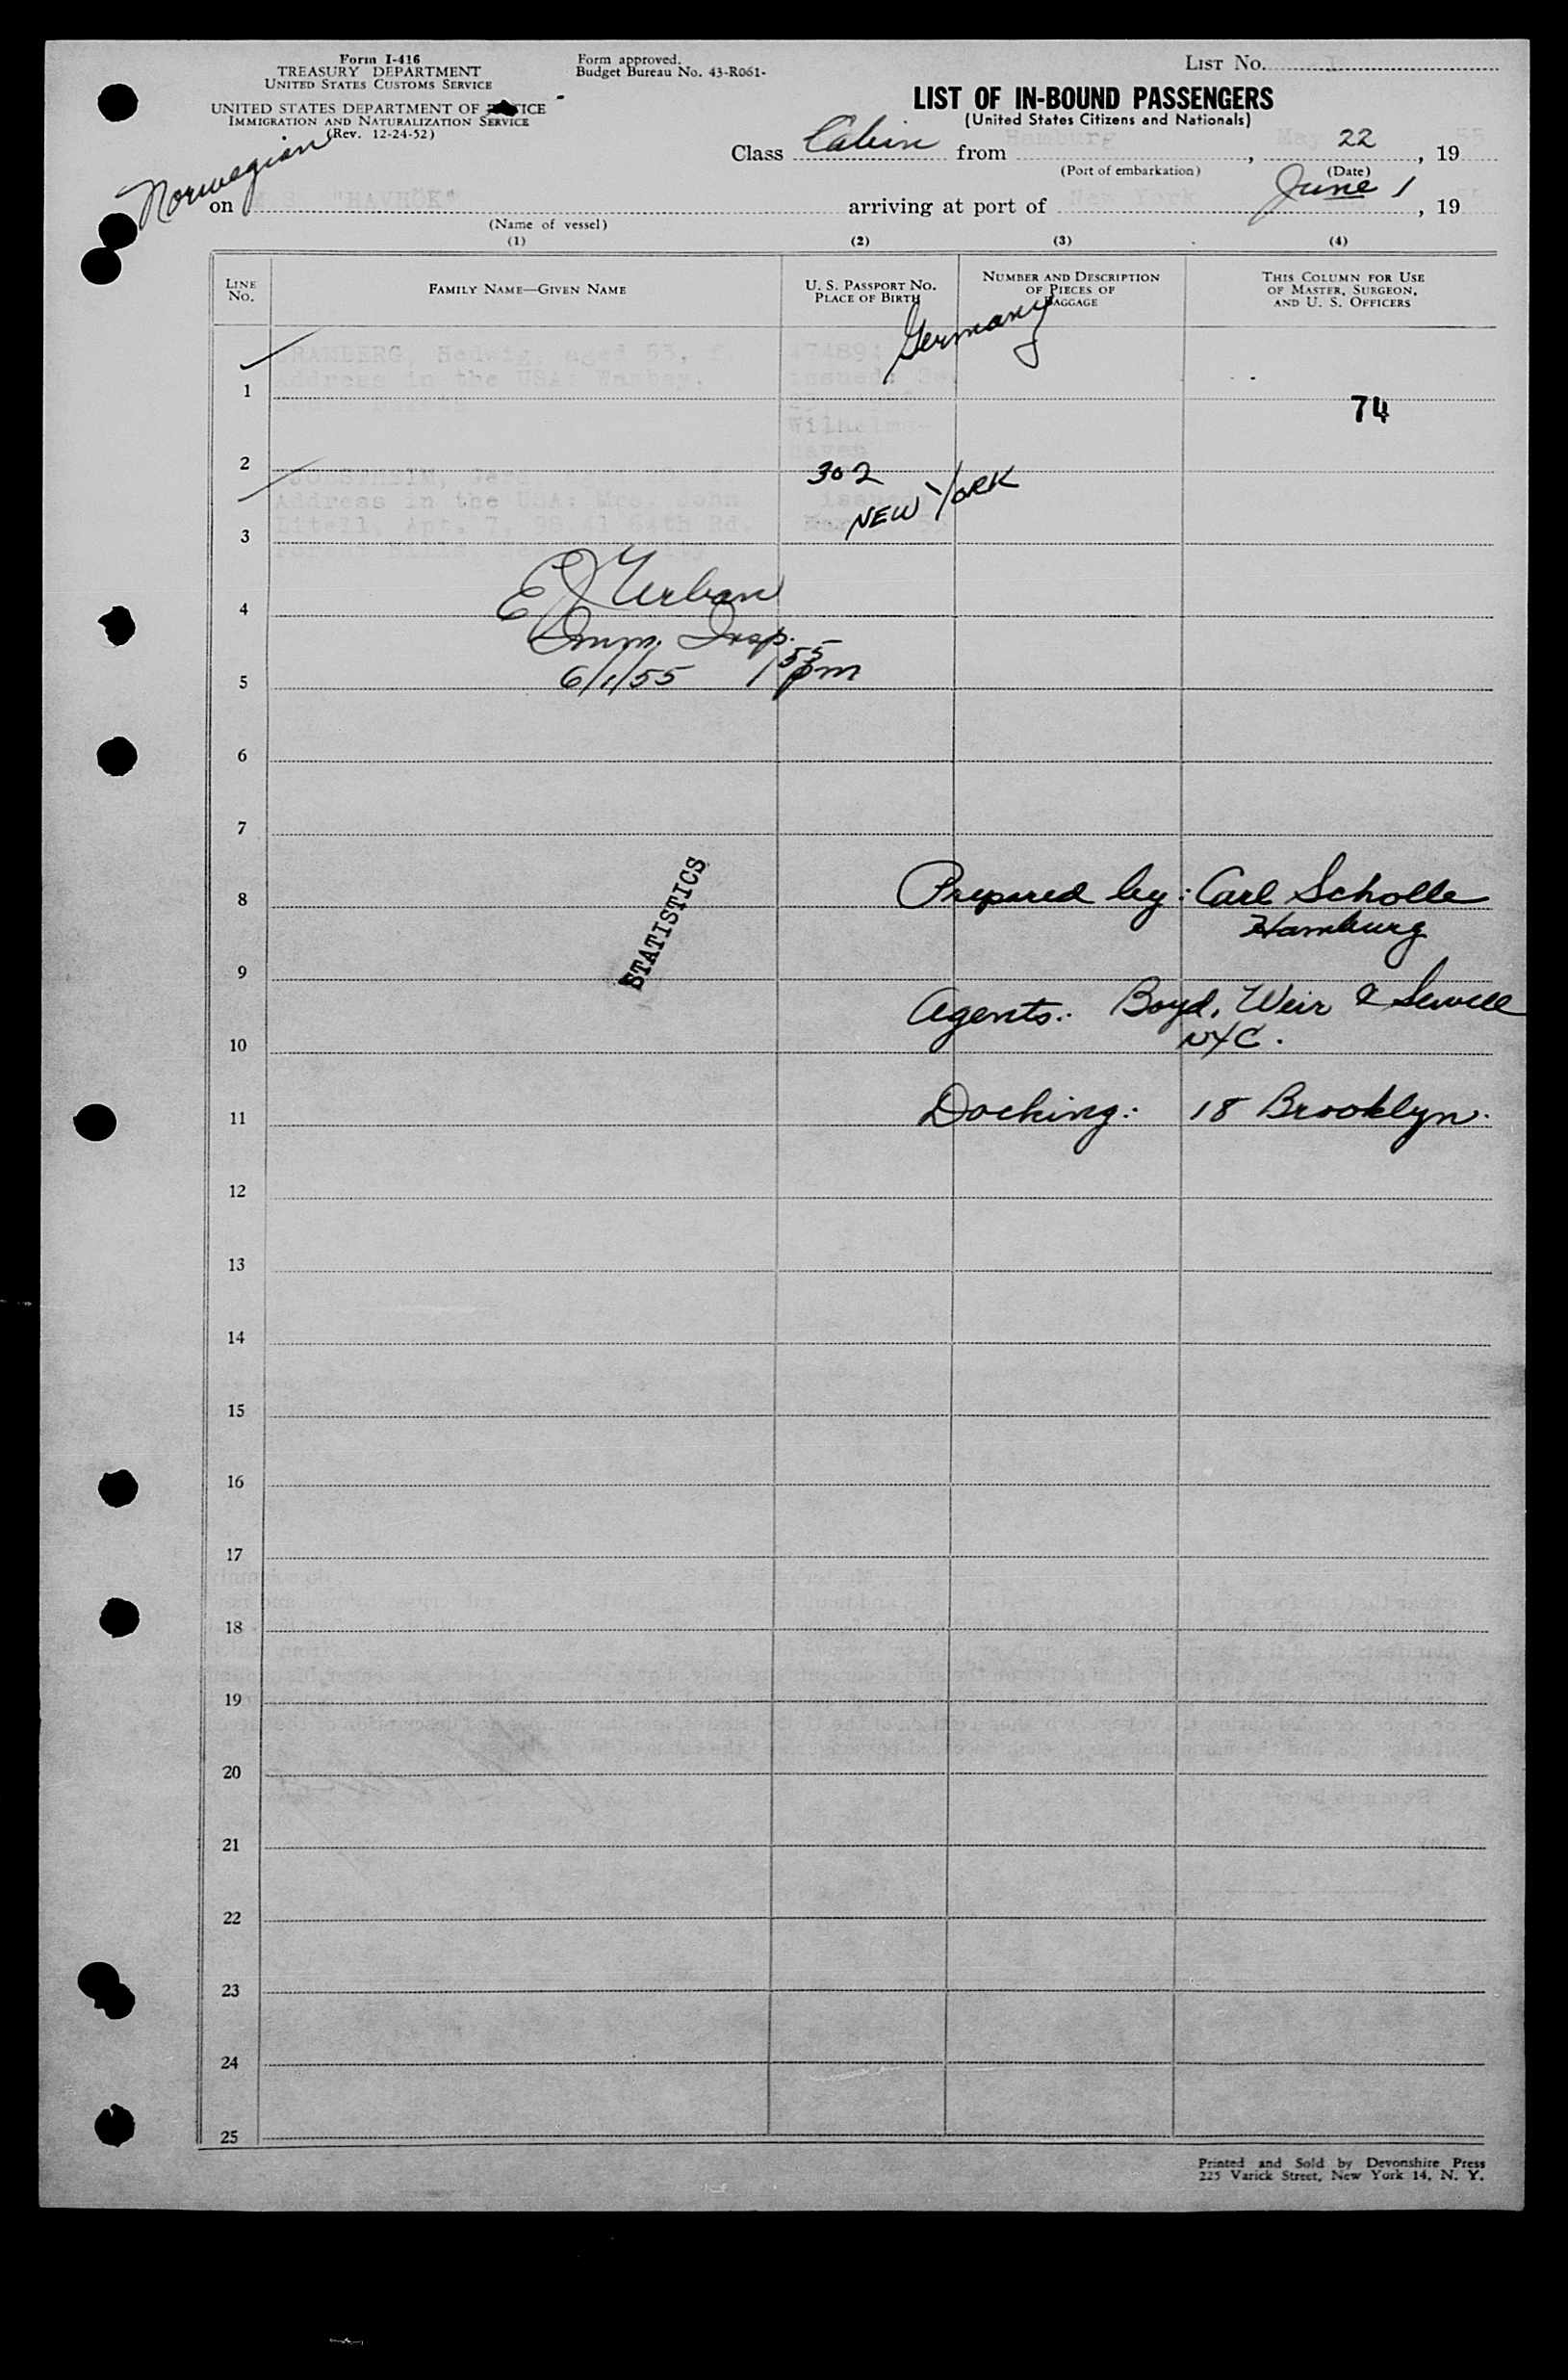 Form I-416
TREASURY DEPARTMENT
UNITED STATES CUSTOMS SERVICE
UNITED STATES DEPARTMENT OF JUSTICE
IMMIGRATION AND NATURALIZATION SERVICE
(Rev. 12-24-52)
Form approved.
Budget Bureau No. 43-R061-
LIST No. 1
LIST OF IN-BOUND PASSENGERS
(United States Citizens and Nationals)
Class Cabin from Hamburg, May 22, 19 55
(Port of embarkation) (Date)
Norwegian
on M.S. "HAVHÖK" arriving at port of New York June 1, 19 55
(Name of vessel)
(1) (2) (3) (4)
LINE No. FAMILY NAME—GIVEN NAME U. S. PASSPORT No. PLACE OF BIRTH NUMBER AND DESCRIPTION OF PIECES OF BAGGAGE THIS COLUMN FOR USE OF MASTER, SURGEON, AND U. S. OFFICERS
Germany
Hedwig, aged 53, f.
Address in the USA:
issued:
1
74
Wilhelms-
2
302
NEW YORK
Address in the USA: Mrs. John
issued
Apt. 7, 98.41 64th Rd.
3
E J Urban
4
Imm. Insp.
6/1/55 1 55 pm
5
6
7
8 Prepared by: Carl Scholle
Hamburg
STATISTICS
9
Agents: Boyd, Weir & Sewell
NYC.
10
11 Docking: 18 Brooklyn.
12
13
14
15
16
17
18
19
20
21
22
23
24
25
Printed and Sold by Devonshire Press
225 Varick Street, New York 14, N. Y.